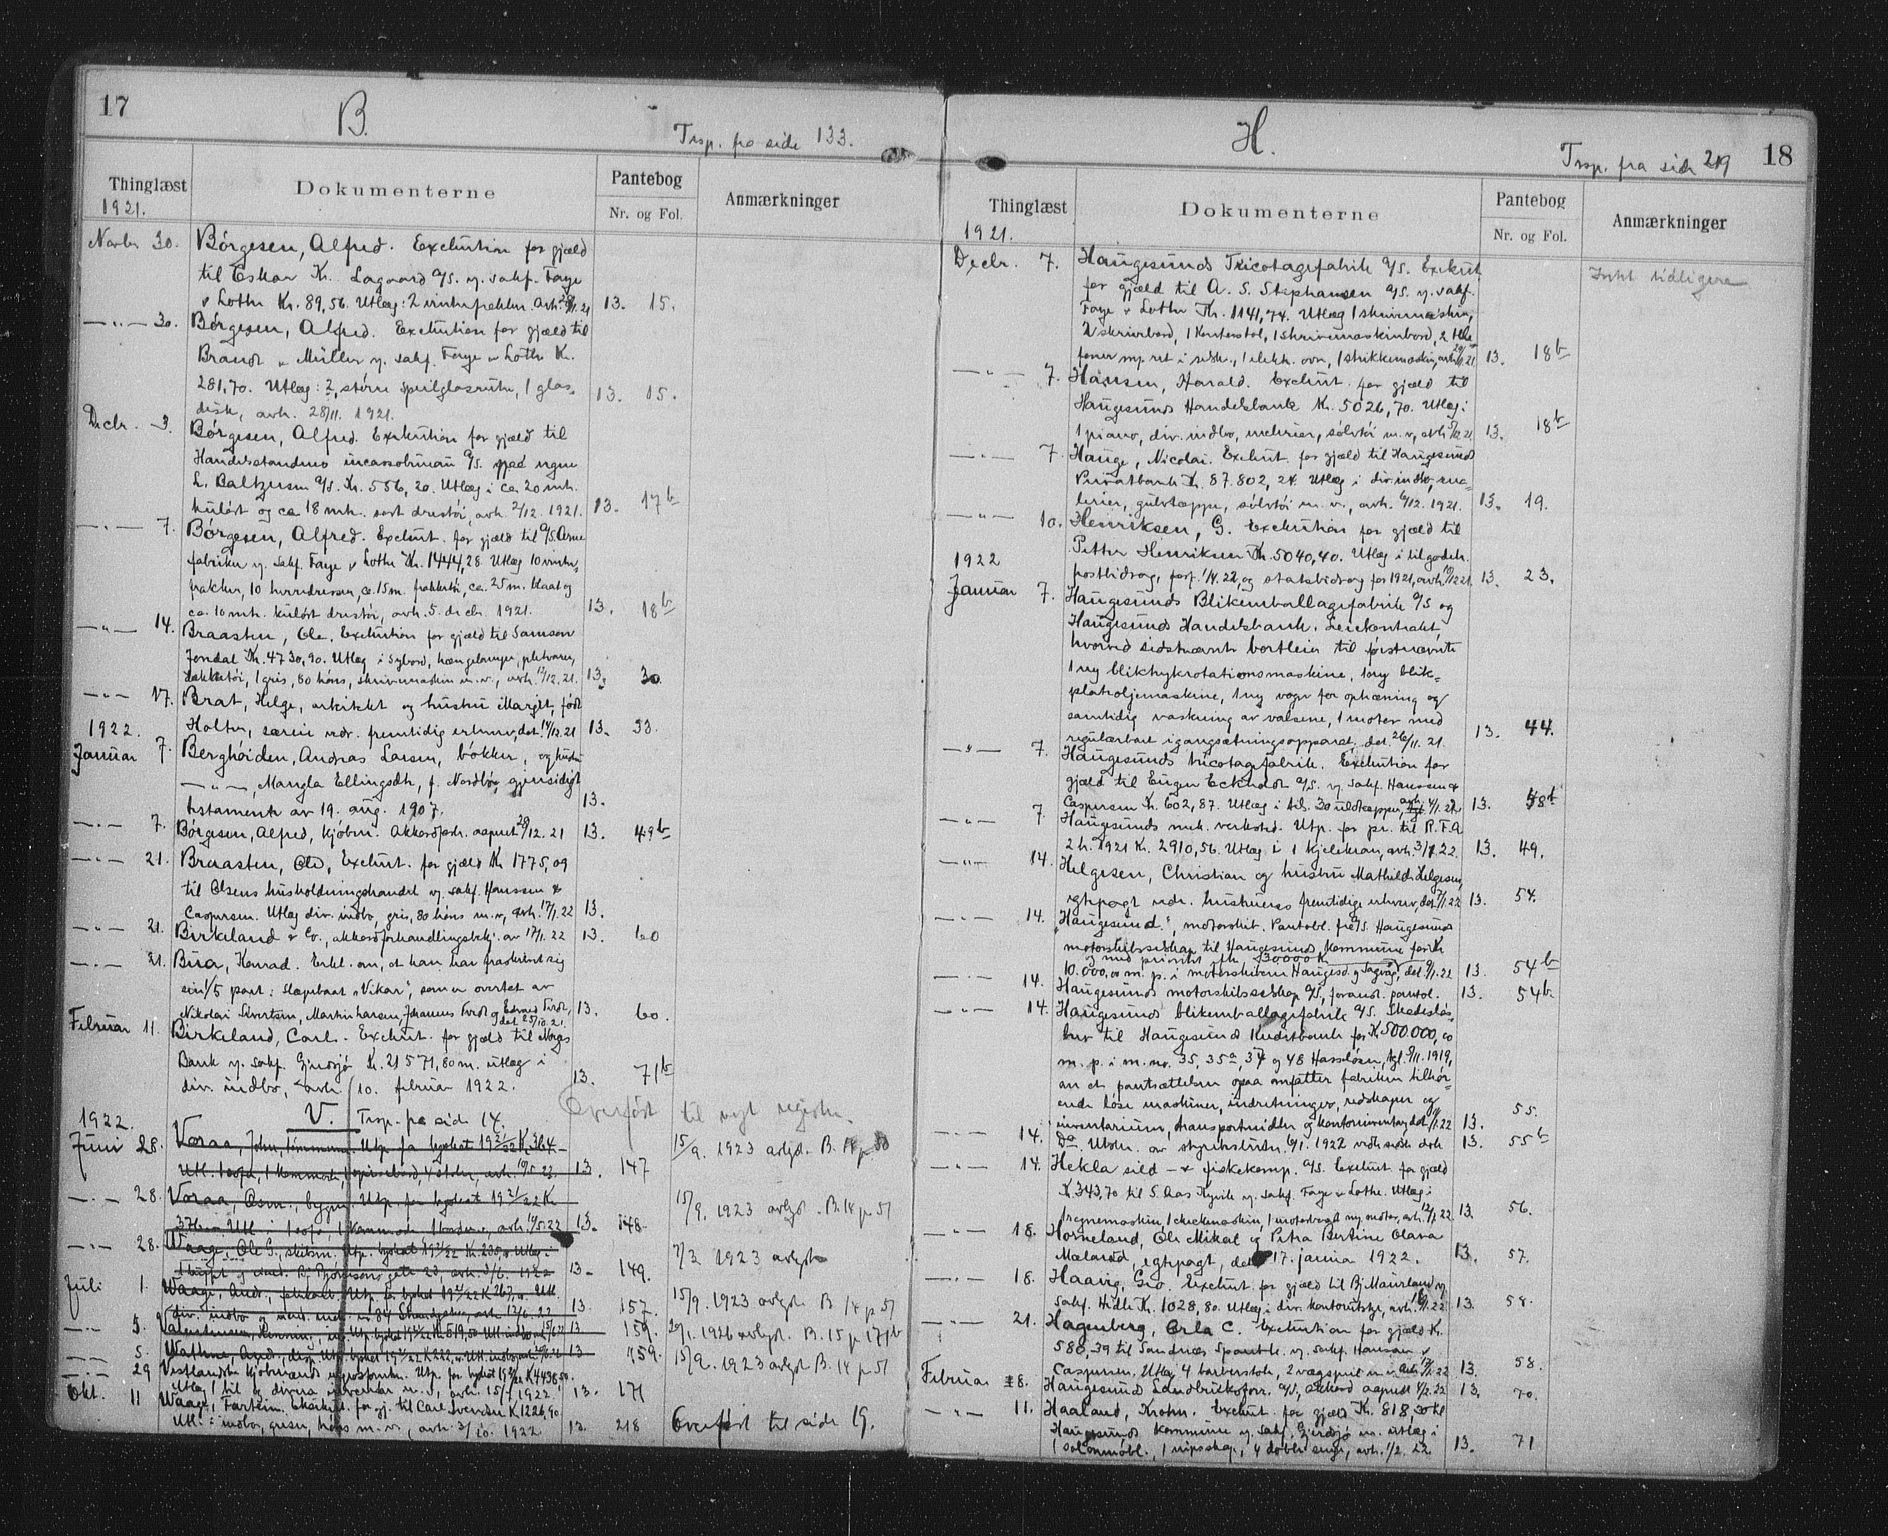 17
B.
Trsp. fra side 133.
Thinglæst
Dokumenterne
Pantebog
Nr. og Fol.
Anmærkninger
1921.
Novbr 30. Børgesen, Alfred. Exekution for gjæld
til Eskar Kr. Lagaard A/S. v. sakf. Faye
& Lothe Kr. 89,56. Utlæg: 2 vinterfrakker. avh. 13. 15.
—"— 30. Børgesen, Alfred. Exekution for gjæld til
Brandt & Müller v. sakf. Faye & Lothe Kr.
281,70. Utlæg: 2 større speilglasrute, 1 glas- 13. 15.
disk, avh. 28/11. 1921.
Decbr. 3. Børgesen, Alfred. Exekution for gjæld til
Handelsstandens incassobureau A/S. egne
L. Baltzersen A/S. Kr. 556,20. Utlæg i ca 20 mtr.
kulørt og ca 18 mtr. sort drestøi, avh. 2/12. 1921. 13. 17b
—"— 7. Børgesen, Alfred. Exekut. for gjæld til A/S. Arne
fabriker v. sakf. Faye & Lothe Kr. 1444,28 Utlæg 10 vinter-
frakker, 10 herredresser, ca. 15 m. frakketøi, ca. 25 m. blaat og
ca. 10 mtr. kulørt drestøi, avh. 5. decbr. 1921. 13. 18b
—"— 14. Braasten, Ole. Exekution for gjæld til Samson
Jondal Kr. 4730,90. Utlæg i sybord, hængelamper, pletvarer,
dækketøi, 1 gris, 80 høns, skrivemaskin m.v., avh. 12/12. 21. 13. 30
—"— 17. Brat, Helge, arkitekt og hustru Margit, født
Holter, særeie vedr. fremtidig erhverv, dat. 14/12. 21 13. 33.
1922.
Januar 7. Berghøiden, Andreas Larsen, bøkker, og hustru
—"—, Mangla Ellingsdtr., f. Nordbø, gjensidigt
testamente av 19. aug. 1907. 13.
—"— 7. Børgesen, Alfred, kjøbm. Akkordforh. aapnet 28/12. 21 13. 49b
—"— 21. Braasten, Ole, Exekut. for gjæld Kr. 1775,09
til Olsens husholdningshandel v. sakf. Hanssen &
Caspersen. Utlæg div. indbo, gris, 80 høns m.v, avh. 17/1. 22 13.
—"— 21. Birkeland & Co., akkordforhandlingsbekj. av 17/1. 22 13. 60
—"— 21. Bua, Konrad. Erkl. om, at han har fraskrevet sig
sin 1/5 part i Slæpebaat "Vikar", som er overtat av
Nikolai Sivertsen, Martin Larsen, Johannes Tveit og Edvard Tveit, 13. 60.
dat. 25/10. 21.
Februar 11. Birkeland, Carl. Exekut. for gjæld til Norges
Bank v. sakf. Gjerdsjø Kr. 21 571,80 m. utlæg i
div. indbo, avh. 10. februar 1922. 13. 71b
V. Trsp. fra side 14.
Overført til nyt register.
1922.
Juni 28. Voraa, John, tømmerm. Utp. for byskat 19 21/22 K. 364
Utl. 1 sofa, 1 kommode, 1 spisebord, 4 stoler, avh. 19/5. 22. 13. 147 15/9. 1923 avlyst. B. 14 p. 50
—"— 28. Voraa, Asm., byggm. Utp. for byskat 19 21/22 K
Utl. i 1 sofa, 1 kommode, 1 bord, avh. 19/5. 22 13. 148. 15/9. 1923 avlyst. B. 14 p. 51
—"— 28. Waage, Ole G., skibsm. Utp. byskat 19 21/22 K. Utlæg i
1 buffet 13. 149. 7/3 1923 avlyst
Juli 1. Waage, Andr., Utp. for byskat 19 21/22 K 267, Utl.
div. indbo avh. 13/6. 22 13. 157. 15/9. 1923 avlyst B. 14 p. 51
—"— 5. Utp. byskat 19 21/22 13 159. 20/1. 1926 avlyst. B. 15 p 171b
—"— 5. Wathne, And., Utp. byskat 19 21/22 K 222, 13 159. 15/9. 1923 avlyst B. 14 p. 51
—"— 29 Vestlandske kjøbmænds Utp. for byskat 19 21/22 K 4436,50.
Utlæg 1 bil & diverse inventar m.v, avh. 15/7. 1922. 13. 171
Okt. 11 Waage, Torstein. Exekut. for gj. til Carl Iversen K 1226,90
Utl. i indbo, griser, høns m.v., avh. 3/10. 1922. 13. 218 Overført til side 19.
18
H.
Trsp. fra side 219
Thinglæst
Dokumenterne
Pantebog
Nr. og Fol.
Anmærkninger
1921.
Decbr. 7. Haugesunds Tricotagefabrik A/S. Exekut. Intet tidligere
for gjæld til A. S. Stephansen A/S. v. sakf.
Faye & Lothe Kr. 1141,74. Utlæg 1 skrivemaskin,
2 skrivebord, 1 kontorstol, 1 skrivemaskinbord, 2 tele-
foner m. ret i selsk., 1 elektr. ovn, 1 strikkemaskin, avh. 13. 18b
—"— 7. Hansen, Harald. Exekut. for gjæld til
Haugesunds Handelsbank Kr. 5026,70. Utlæg i
1 piano, div. indbo, malerier, sølvtøi m.v., avh. 13. 18b
—"— 7. Hauge, Nicolai. Exekut. for gjæld til Haugesunds
Privatbank K. 87.802,24. Utlæg i div. indbo, ma-
lerier, gulvtæppe, sølvtøi m.v., avh. 6/12. 1921. 13. 19.
—"— 10. Henriksen, G. Exekution for gjæld til
Petter Henriksen Kr. 5040,40. Utlæg i tilgodeh.
postbidrag, forf. 1/4. 22, og statsbidrag for 1921, avh. 13. 23.
1922
Januar 7. Haugesunds Blikemballagefabrik A/S og
Haugesunds Handelsbank. Leiekontrakt,
hvorved sidstnævnte bortleier til førstnævnte
1 ny bliktrykrotationsmaskine, 1 ny blik-
plateoljemaskine, 1 ny vogn for ophæning og
samtidig vaskning av valsene, 1 motor med
regulærbart igangsætningsapparat, dat. 26/11. 21. 13. 44.
—"— 7. Haugesunds tricotagefabrik. Exekution for
gjæld til Eugen Eckhardt A/S. v. sakf. Hanssen &
Caspersen K. 602,87. Utlæg i 30 uldtæpper, avh. 4/1. 22 13. 48b
—"— 7. Haugesunds mek. verksted. Utp. for pr. til R.F.A
2 h. 1921 Kr. 2910,56. Utlæg i 1 kjelekran, avh. 3/1. 22. 13. 49.
—"— 14. Helgesen, Christian og hustru Mathilde Helgesen,
egtepagt vedr. hustruens fremtidige erhverv, dat. 7/1. 22 13. 54.
—"— 14. "Haugesund", motorskib. Pantobl. fra A/S. Haugesunds
motorskibsselskap til Haugesunds kommune for K
og med prioritet efter 130000 K
10.000,00 m. p. i motorskibene Haugesd. og Sagvaag, dat. 9/1. 22 13. 54b
—"— 14. Haugesunds motorskibsselskap A/S, forand. pantobl. 13. 54b
—"— 14. Haugesunds blikemballagefabrik A/S. Skadesløs-
brev til Haugesunds Kreditbank for K 500.000,00
m. p. i m. no. 35, 35a, 37 og 48 Hasseløen, tgl. 9/11. 1919,
an at pantsættelsen ogsaa omfatter fabriken tilhør-
ende løse maskiner, indretninger, redskaper og
inventarium, transportmidler og kontorinventar, dat. 9/1. 22 13. 55.
—"— 14. Do Utskr. av styrebeslutn. 6/1. 1922 vedr. sidste dok 13. 55b
—"— 14. Hekla sild- & fiskekomp. A/S. Exekut for gjæld
K. 343,70 til S. Aas Kyvik v. sakf. Faye & Lothe. Utlæg i
1 regnemaskin, 1 chekmaskin, 1 motorbaat m. motor, avh. 12/1. 22. 13. 56.
—"— 18. Horneland, Ole Mikal og Petra Bertine Olava
Mæland, egtepagt, dat 17. januar 1922. 13. 57.
—"— 18. Haavig, Geo. Exekut. for gjæld til Bj. Meinland v.
sakf. Hidle Kr. 1028,80. Utlæg i div. kontorutstyr, avh. 13. 58.
—"— 21. Hagenberg, Erla C. Exekution for gjæld K.
586,39 til Sandnes Sparebk. v. sakf. Hanssen &
Caspersen, Utlæg 4 barberstole, 2 vægspeil m.v. avh. 22 13. 58.
Februar 8. Haugesunds Landbruksforr. A/S, akkord aapnet 4/2. 22 13. 70.
—"— 11. Haaland, Krohn. Exekut. for gjæld Kr. 818,30 til
Haugesunds kommune v. sakf. Gjerdsjø m. utlæg i
1 salonmøbl., 1 nipsskap, 4 doble senge, avh. 1/2. 22 13. 71